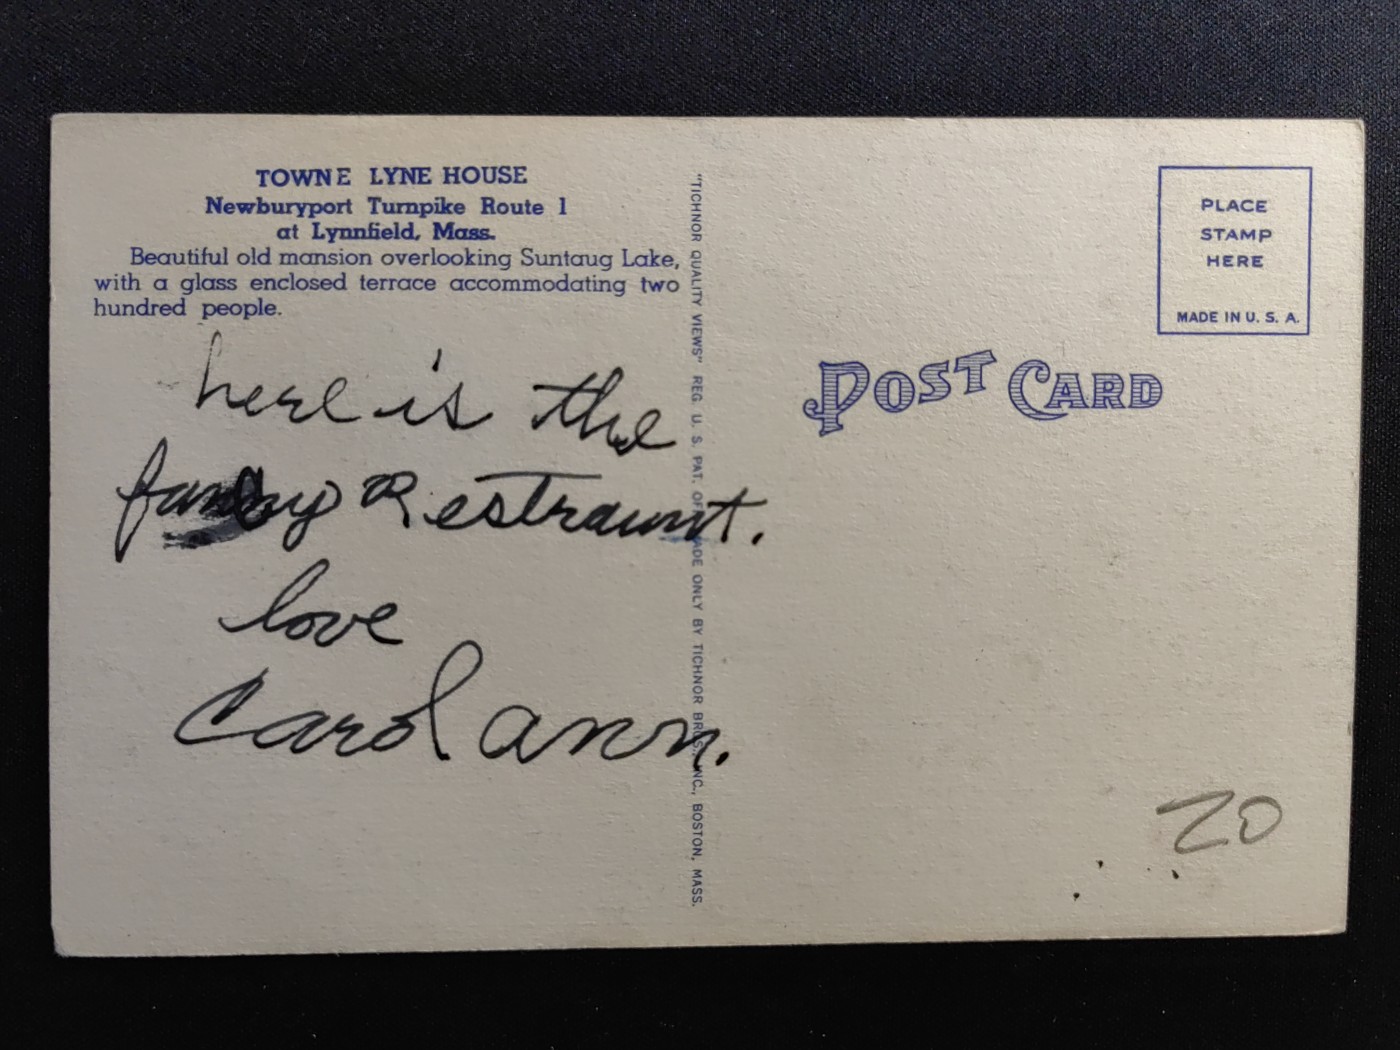 TOWNE LYNE HOUSE
Newburyport Turnpike Route 1
at Lynnfield, Mass.
Beautiful old mansion overlooking Suntaug Lake,
with a glass enclosed terrace accommodating two
hundred people.
here is the
Restraunt.
love
Carol ann.
"TICHNOR QUALITY VIEWS" REG. U. S. PAT. OFF. MADE ONLY BY TICHNOR BROS., INC., BOSTON, MASS.
PLACE
STAMP
HERE
MADE IN U. S. A.
POST CARD
20